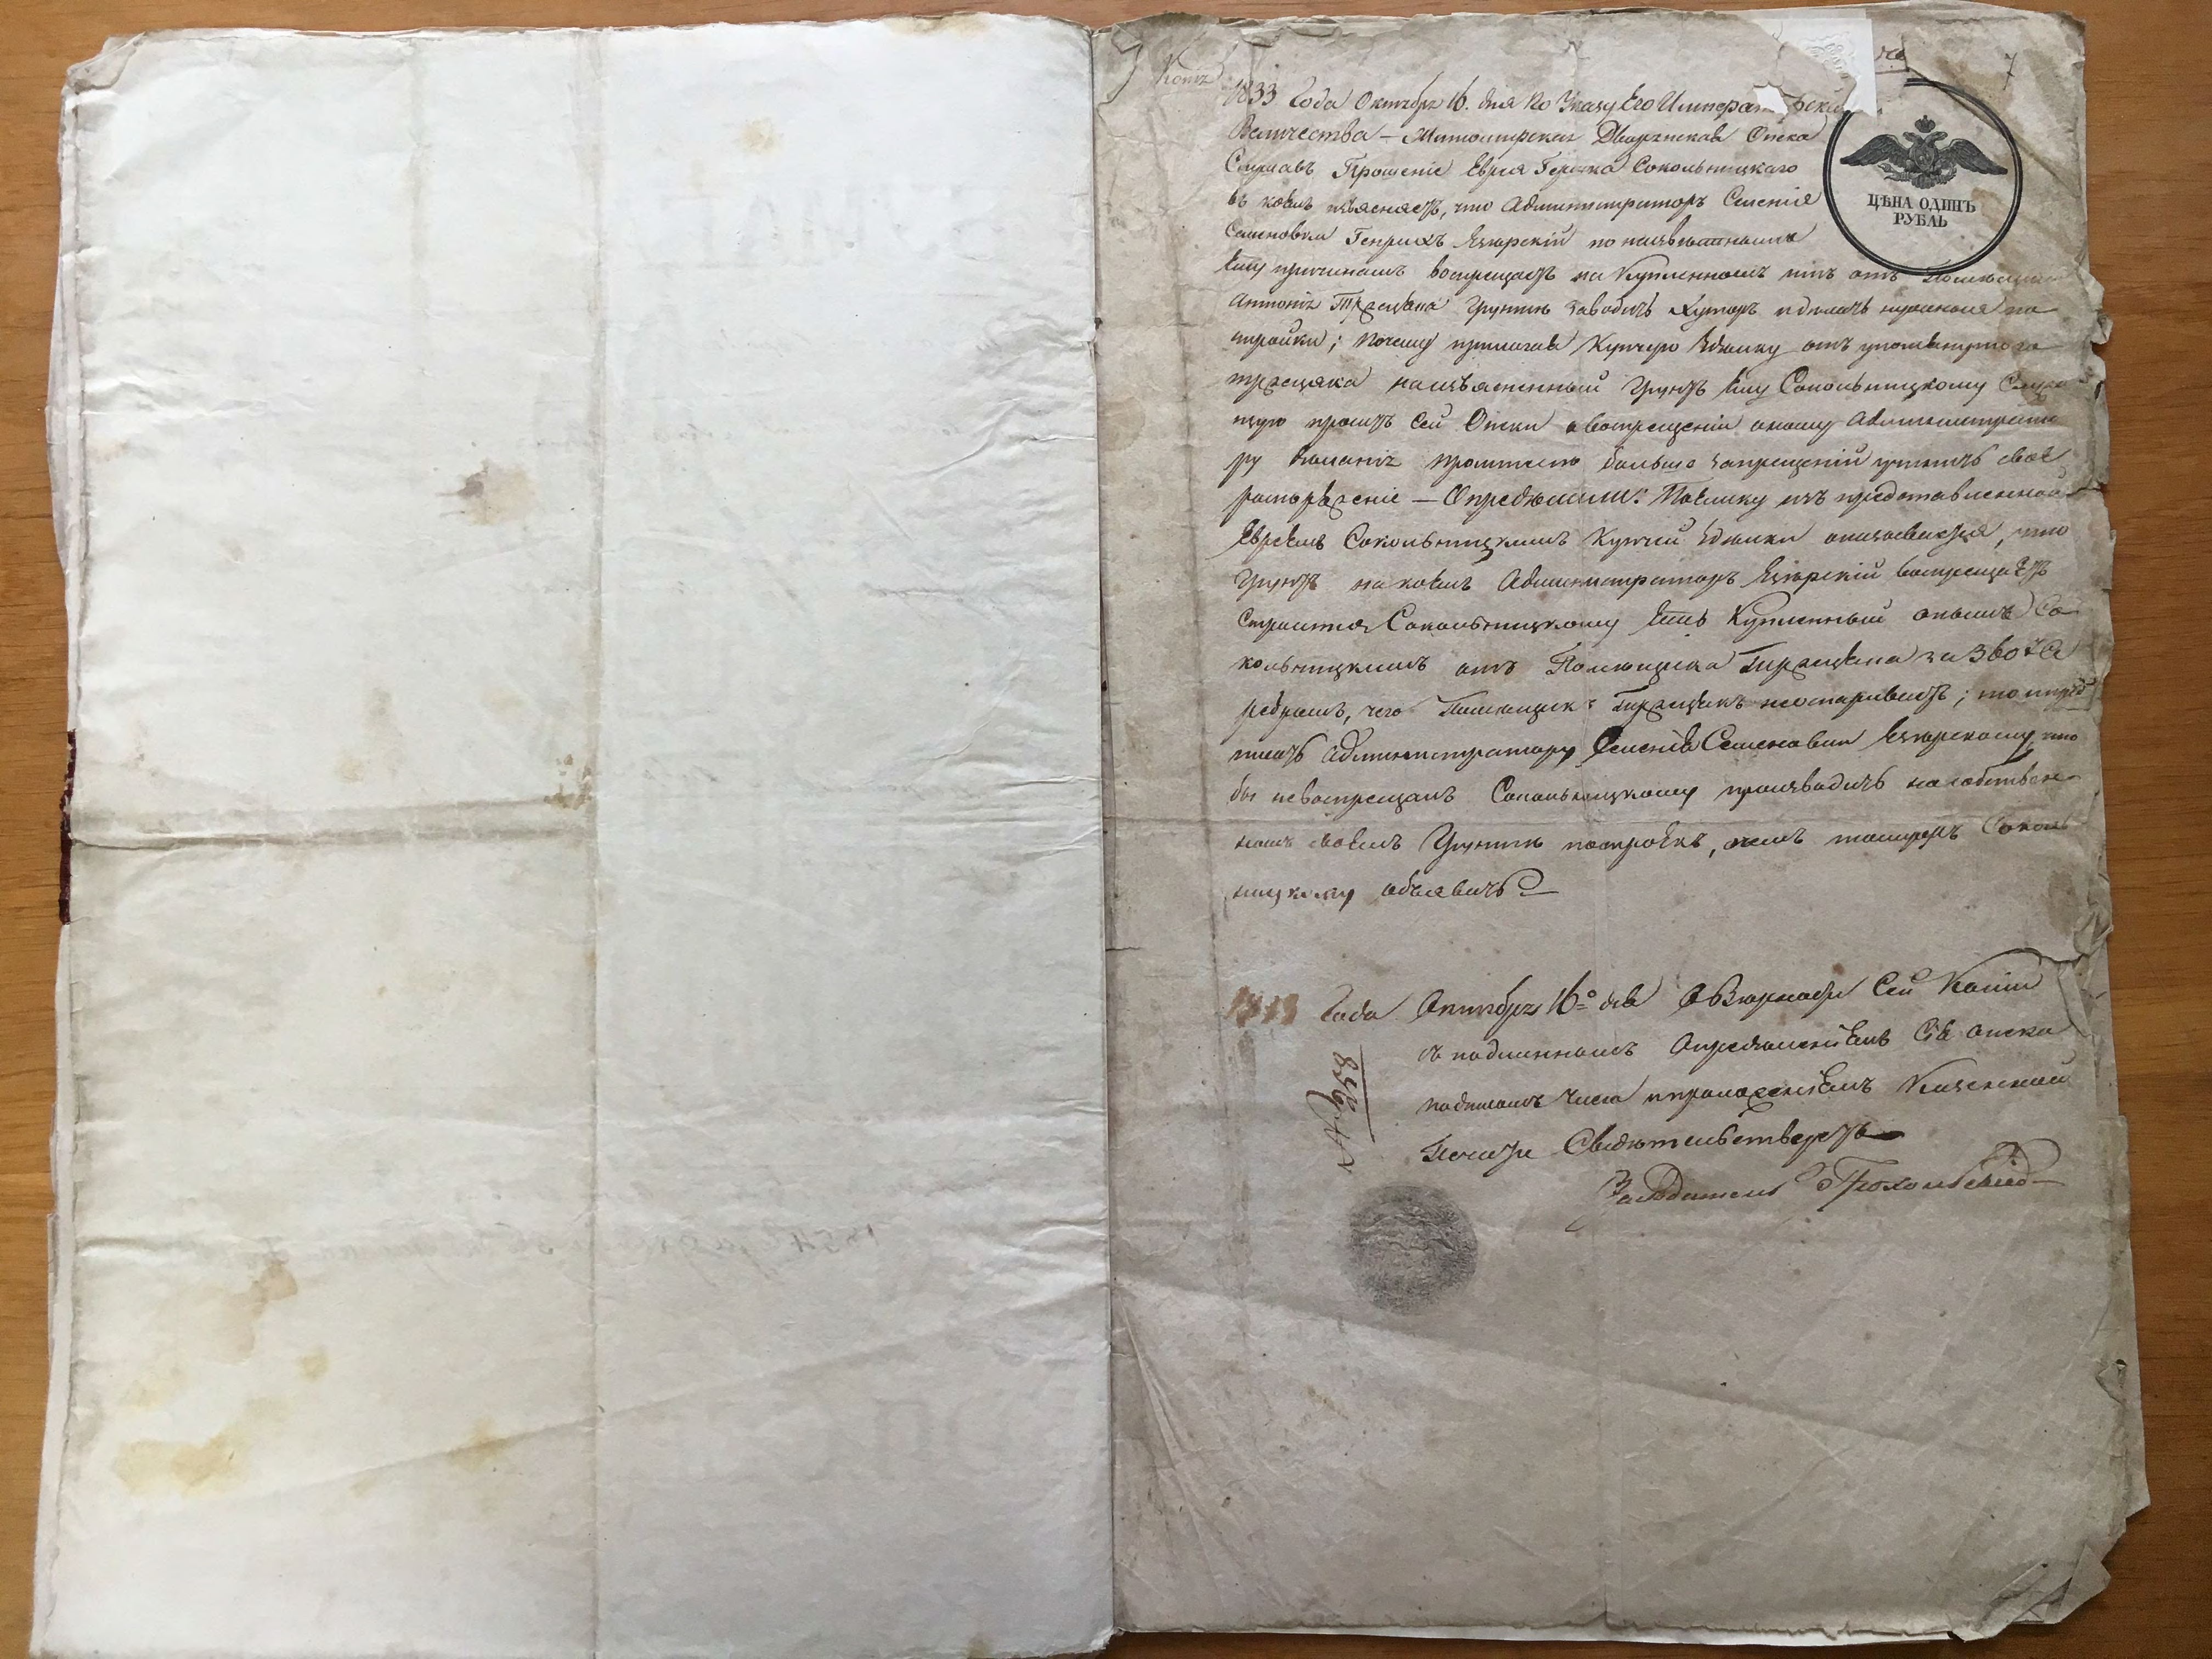 Копія
7
1833 Года Октября 16. дня По Указу Его Императорскаго
Величества — Житомирская Дворянская Опека
Слушавъ Прошеніе Еврея Гершка Сокольницкаго
въ коемъ изъясняетъ, что Администраторъ Селенія
Семеновки Генрихъ Езіорскій по неизвѣстнымъ
Ему причинамъ воспрещаетъ на Купленномъ имъ отъ Помѣщика
Антонія Тржецяка Грунтѣ заводить Хуторъ и делать нужныя по
стройки; Почему прилагая Купчую Сдѣлку отъ упомянутого
Тржецяка на изъясненный Грунтъ Ему Сокольницкому Служа
щую проситъ Сей Опеки о воспрещеніи оному Администрато
ру делать больше запрещеній учинить свое
распоряженіе — Опредѣлили: Поелику изъ представленной
Евреемъ Сокольницкимъ Купчей Сдѣлки оказывается, что
Грунтъ на коемъ Администраторъ Езіорскій воспрещаетъ
Строится Сокольницкому Есть Купленный онымъ Со
кольницкимъ отъ Помѣщика Тржецяка за 360 се
ребромъ, чего Помѣщикъ Тржецякъ неоспариваетъ; то предъ
писать Администратору Селенія Семеновки Езіорскому, что
бы невоспрещалъ Сокольницкому производить на собствен
номъ своемъ Грунтѣ построекъ, о чемъ Соколь
ницкому объявить
Года Октября 16го дня
съ подлиннымъ Опредѣленіемъ Сія Опека
подписомъ Члена и приложеніемъ Казенной
Печати Свидѣтельствуетъ
Засѣдатель
№ 858
ЦѢНА ОДИНЪ
РУБЛЬ